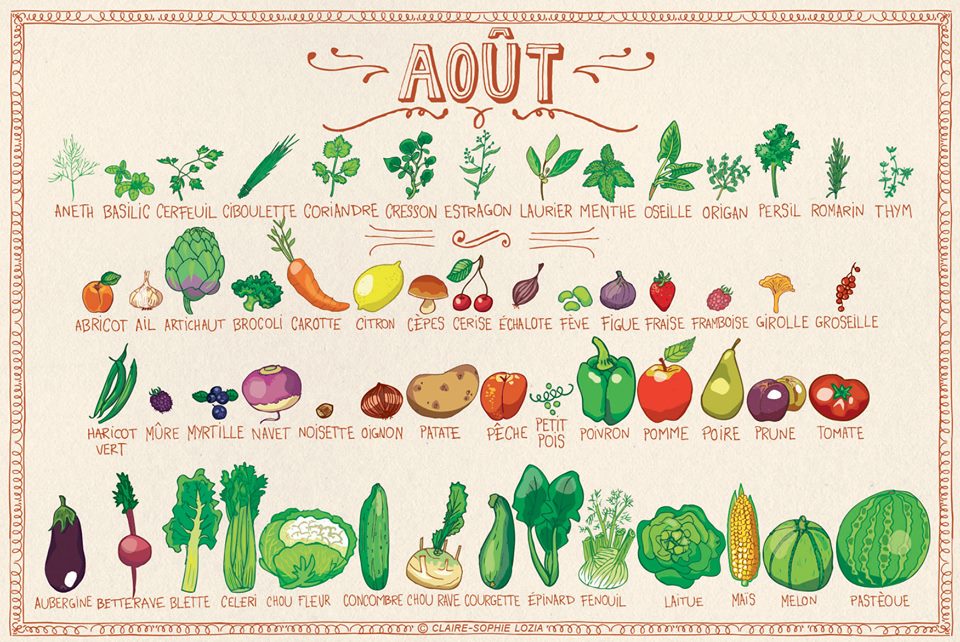 AOÛT
ANETH BASILIC CERFEUIL CIBOULETTE CORIANDRE CRESSON ESTRAGON LAURIER MENTHE OSEILLE ORIGAN PERSIL ROMARIN THYM
ABRICOT AIL ARTICHAUT BROCOLI CAROTTE CITRON CÈPES CERISE ÉCHALOTE FÈVE FIGUE FRAISE FRAMBOISE GIROLLE GROSEILLE
HARICOT VERT MÛRE MYRTILLE NAVET NOISETTE OIGNON PATATE PÊCHE PETIT POIS POIVRON POMME POIRE PRUNE TOMATE
AUBERGINE BETTERAVE BLETTE CELERI CHOU FLEUR CONCOMBRE CHOU RAVE COURGETTE ÉPINARD FENOUIL LAITUE MAÏS MELON PASTÈQUE
© CLAIRE-SOPHIE LOZIA